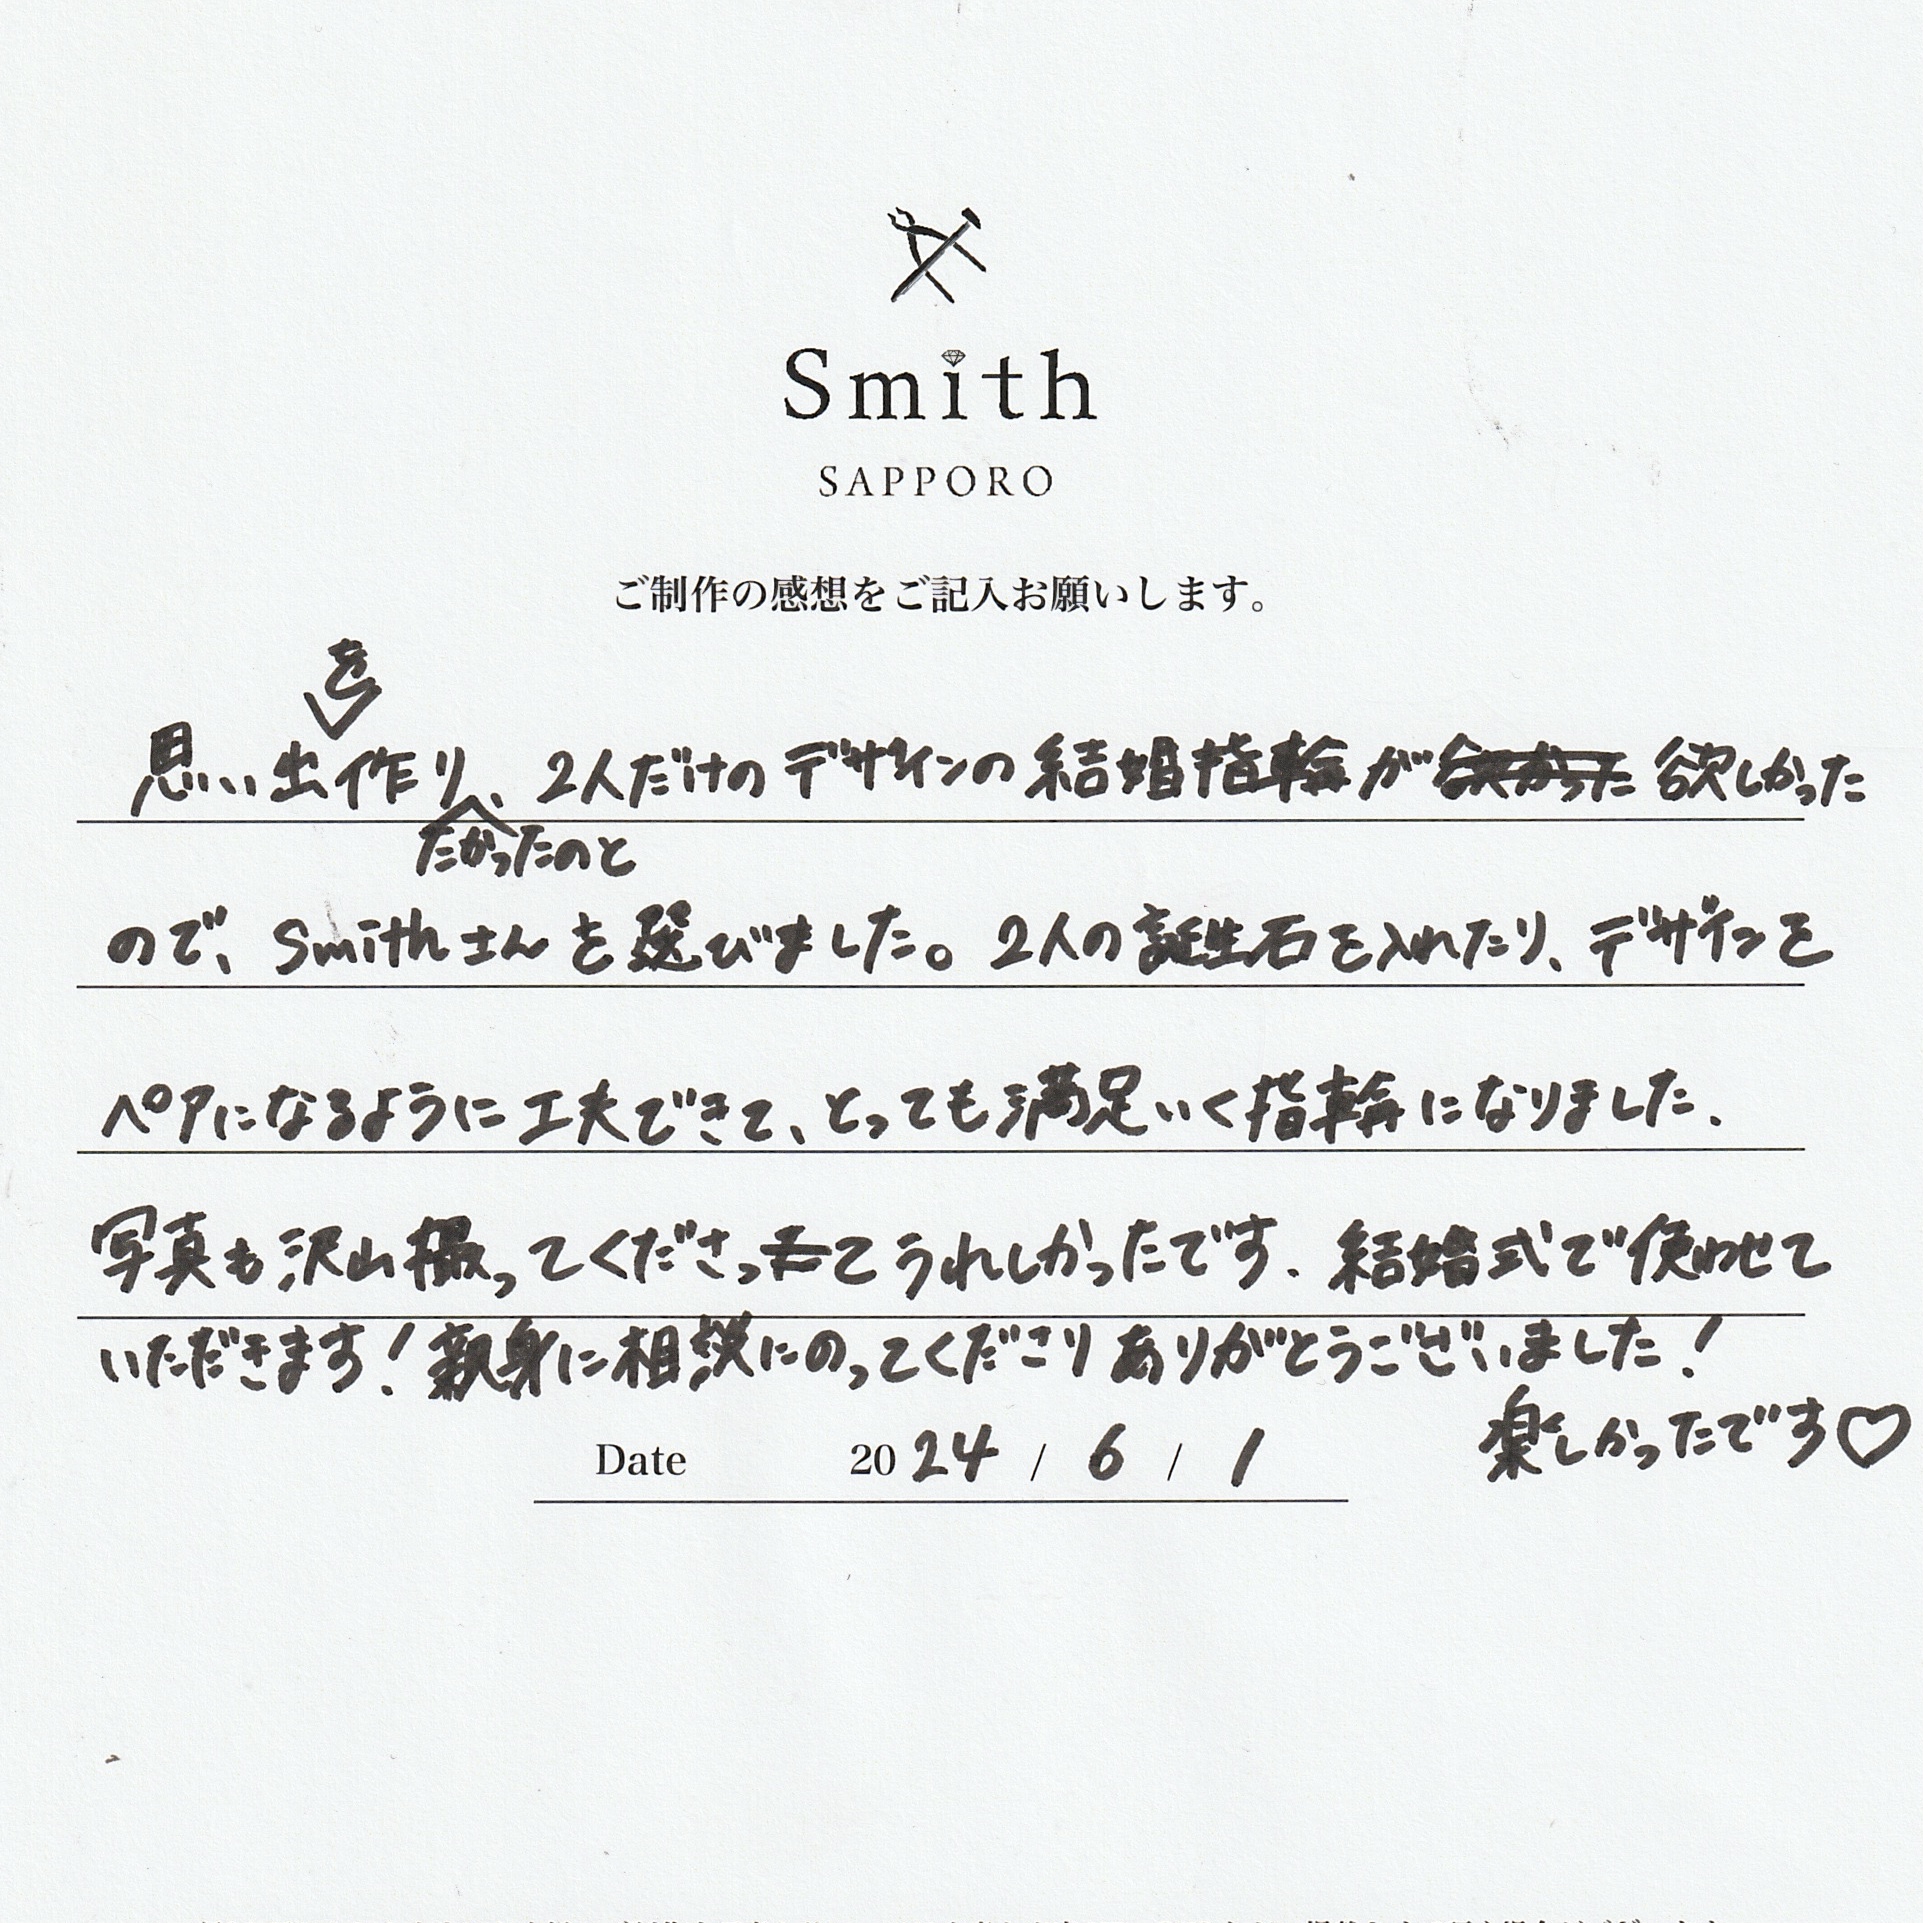 Smith
SAPPORO
ご制作の感想をご記入お願いします。
思い出を作りたかったのと、2人だけのデザインの結婚指輪が欲しかった
ので、Smithさんを選びました。2人の誕生石を入れたり、デザインを
ペアになるように工夫できて、とっても満足いく指輪になりました.
写真も沢山撮ってくださってうれしかったです. 結婚式で使わせて
いただきます!親身に相談にのってくださりありがとうございました!
楽しかったです♡
Date 2024 / 6 / 1